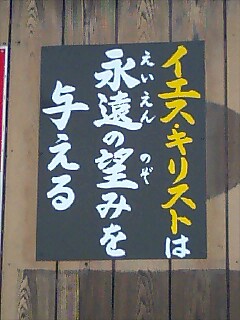 イエス・キリストは
永遠の望みを
えいえん のぞ
与える